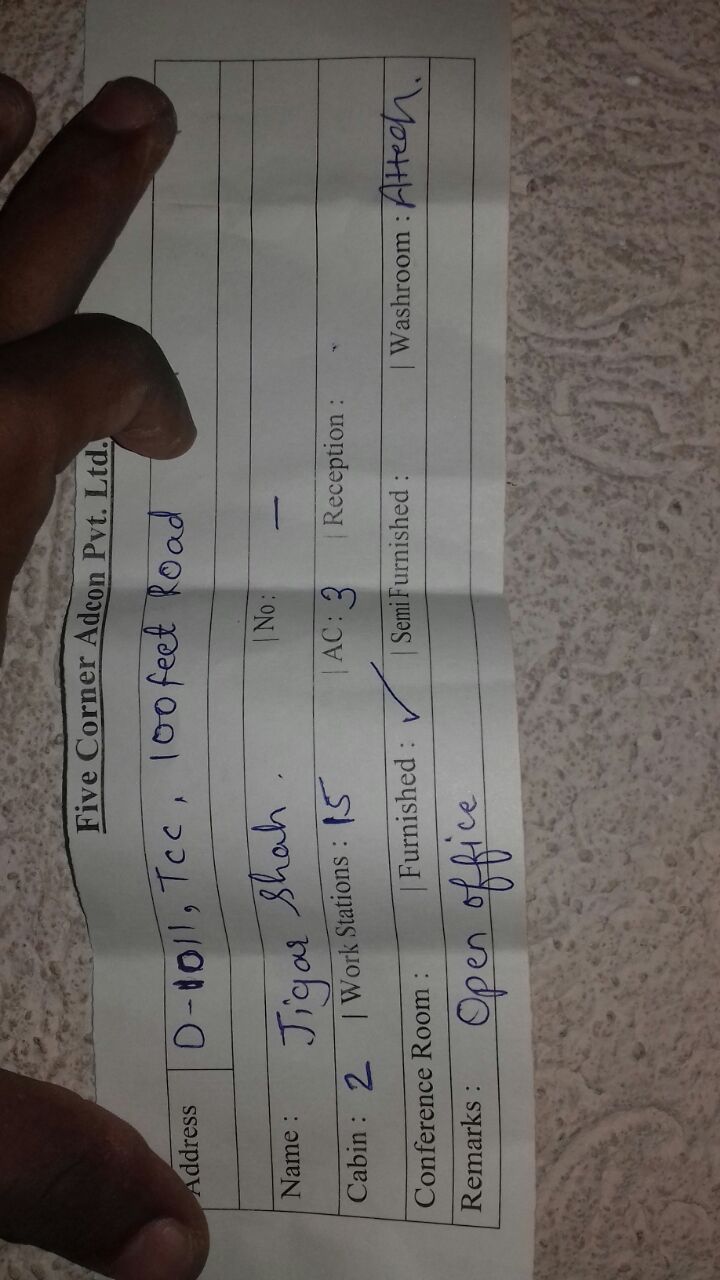 Five Corner Adcon Pvt. Ltd.
Address D-1011, Tcc, 100 feet Road
Name : Jigar Shah. | No : —
Cabin : 2 | Work Stations : 15 | AC : 3 | Reception :
Conference Room : | Furnished : ✓ | Semi Furnished : | Washroom : Attech.
Remarks : Open office